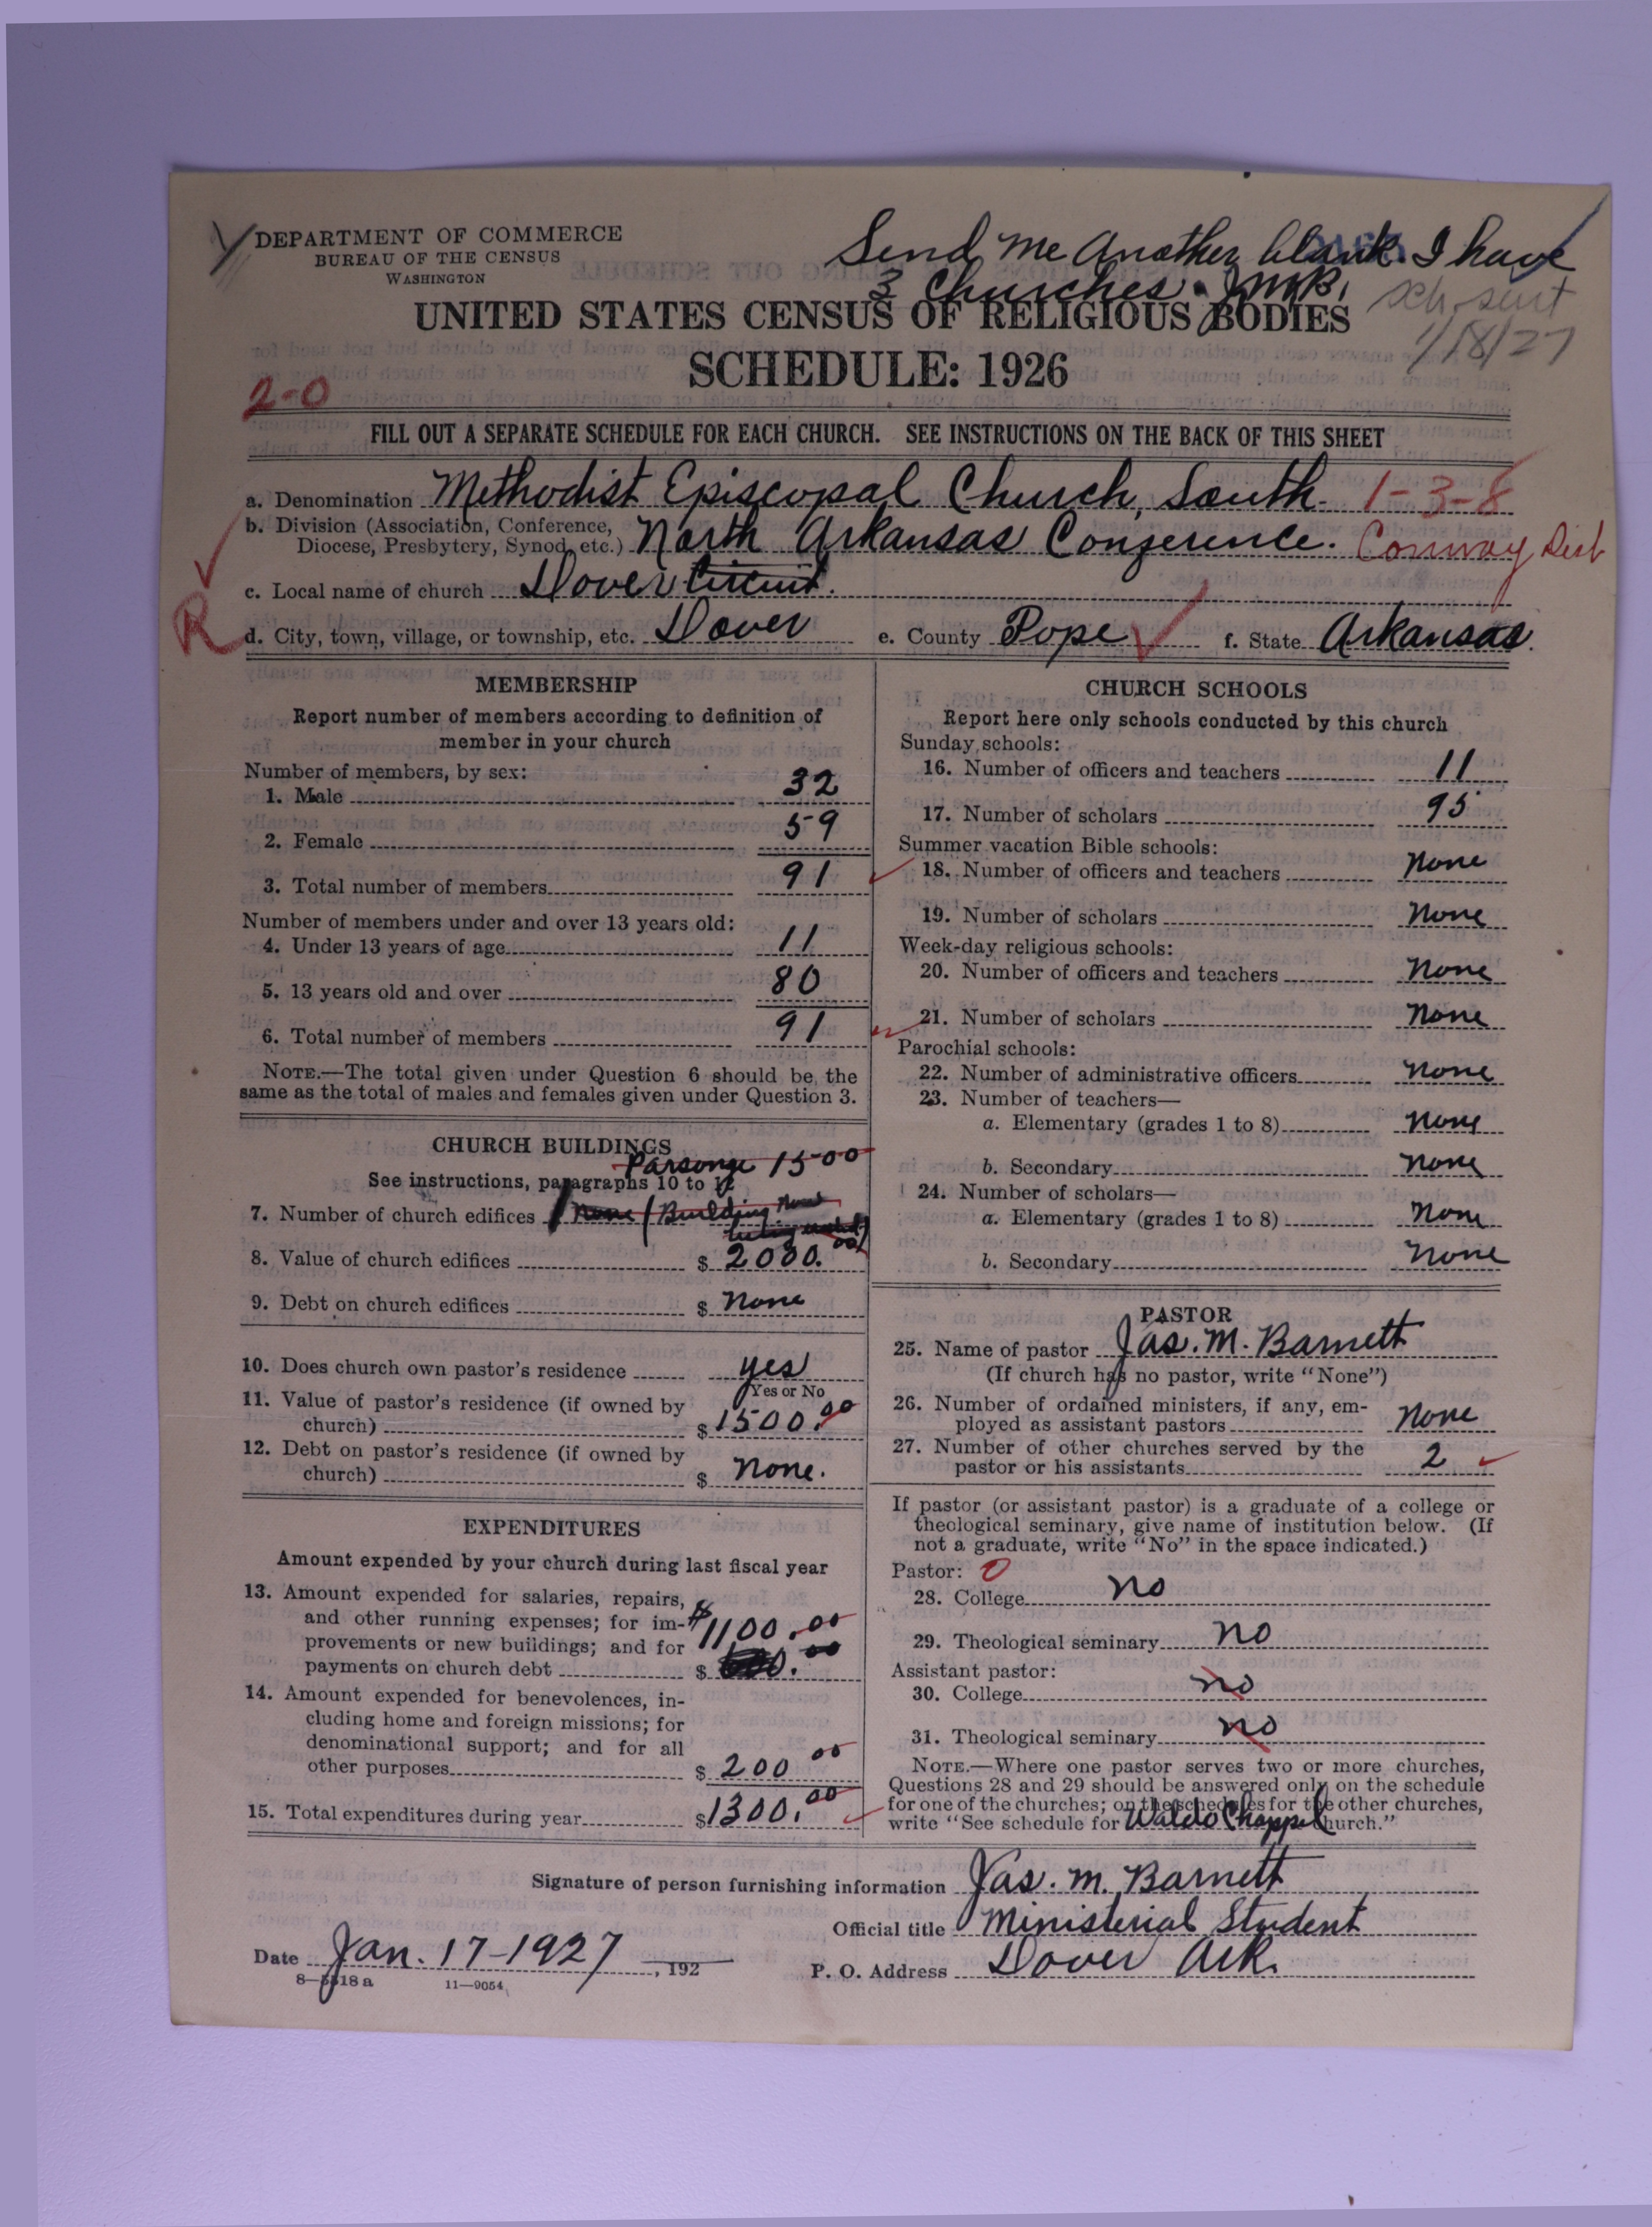 DEPARTMENT OF COMMERCE
BUREAU OF THE CENSUS
WASHINGTON
Send me another blank. I have
3 Churches. JMB.
sch. sent
1/18/27
UNITED STATES CENSUS OF RELIGIOUS BODIES
SCHEDULE: 1926
2-0
FILL OUT A SEPARATE SCHEDULE FOR EACH CHURCH. SEE INSTRUCTIONS ON THE BACK OF THIS SHEET
a. Denomination Methodist Episcopal Church, South. 1-3-8
b. Division (Association, Conference,
Diocese, Presbytery, Synod, etc.) North Arkansas Conference. Conway Dist
c. Local name of church Dover Circuit.
R
d. City, town, village, or township, etc. Dover e. County Pope f. State Arkansas.
MEMBERSHIP
Report number of members according to definition of
member in your church
Number of members, by sex:
1. Male 32
2. Female 59
3. Total number of members 91
Number of members under and over 13 years old:
4. Under 13 years of age 11
5. 13 years old and over 80
6. Total number of members 91
NOTE.—The total given under Question 6 should be the
same as the total of males and females given under Question 3.
CHURCH BUILDINGS
Parsonge 1500
See instructions, paragraphs 10 to 12
7. Number of church edifices 1 None (Building
8. Value of church edifices $ 2000.00
9. Debt on church edifices $ None
10. Does church own pastor's residence yes
Yes or No
11. Value of pastor's residence (if owned by
church) $ 1500.00
12. Debt on pastor's residence (if owned by
church) $ None.
EXPENDITURES
Amount expended by your church during last fiscal year
13. Amount expended for salaries, repairs,
and other running expenses; for im- $1100.00
provements or new buildings; and for
payments on church debt $ .00
14. Amount expended for benevolences, in-
cluding home and foreign missions; for
denominational support; and for all
other purposes $ 200 00
15. Total expenditures during year $1300.00
CHURCH SCHOOLS
Report here only schools conducted by this church
Sunday schools:
16. Number of officers and teachers 11
17. Number of scholars 95
Summer vacation Bible schools:
18. Number of officers and teachers None
19. Number of scholars None
Week-day religious schools:
20. Number of officers and teachers None
21. Number of scholars None
Parochial schools:
22. Number of administrative officers None
23. Number of teachers—
a. Elementary (grades 1 to 8) None
b. Secondary None
24. Number of scholars—
a. Elementary (grades 1 to 8) None
b. Secondary None
PASTOR
25. Name of pastor Jas. M. Barnett
(If church has no pastor, write "None")
26. Number of ordained ministers, if any, em-
ployed as assistant pastors None
27. Number of other churches served by the
pastor or his assistants 2
If pastor (or assistant pastor) is a graduate of a college or
theological seminary, give name of institution below. (If
not a graduate, write "No" in the space indicated.)
Pastor: 0
28. College No
29. Theological seminary No
Assistant pastor:
30. College No
31. Theological seminary No
NOTE.—Where one pastor serves two or more churches,
Questions 28 and 29 should be answered only on the schedule
for one of the churches; on the schedules for the other churches,
write "See schedule for Waldo Chappel Church."
Signature of person furnishing information Jas. M. Barnett
Official title Ministerial Student
Date Jan. 17-1927, 192
P. O. Address Dover Ark.
8—5518 a 11—9054